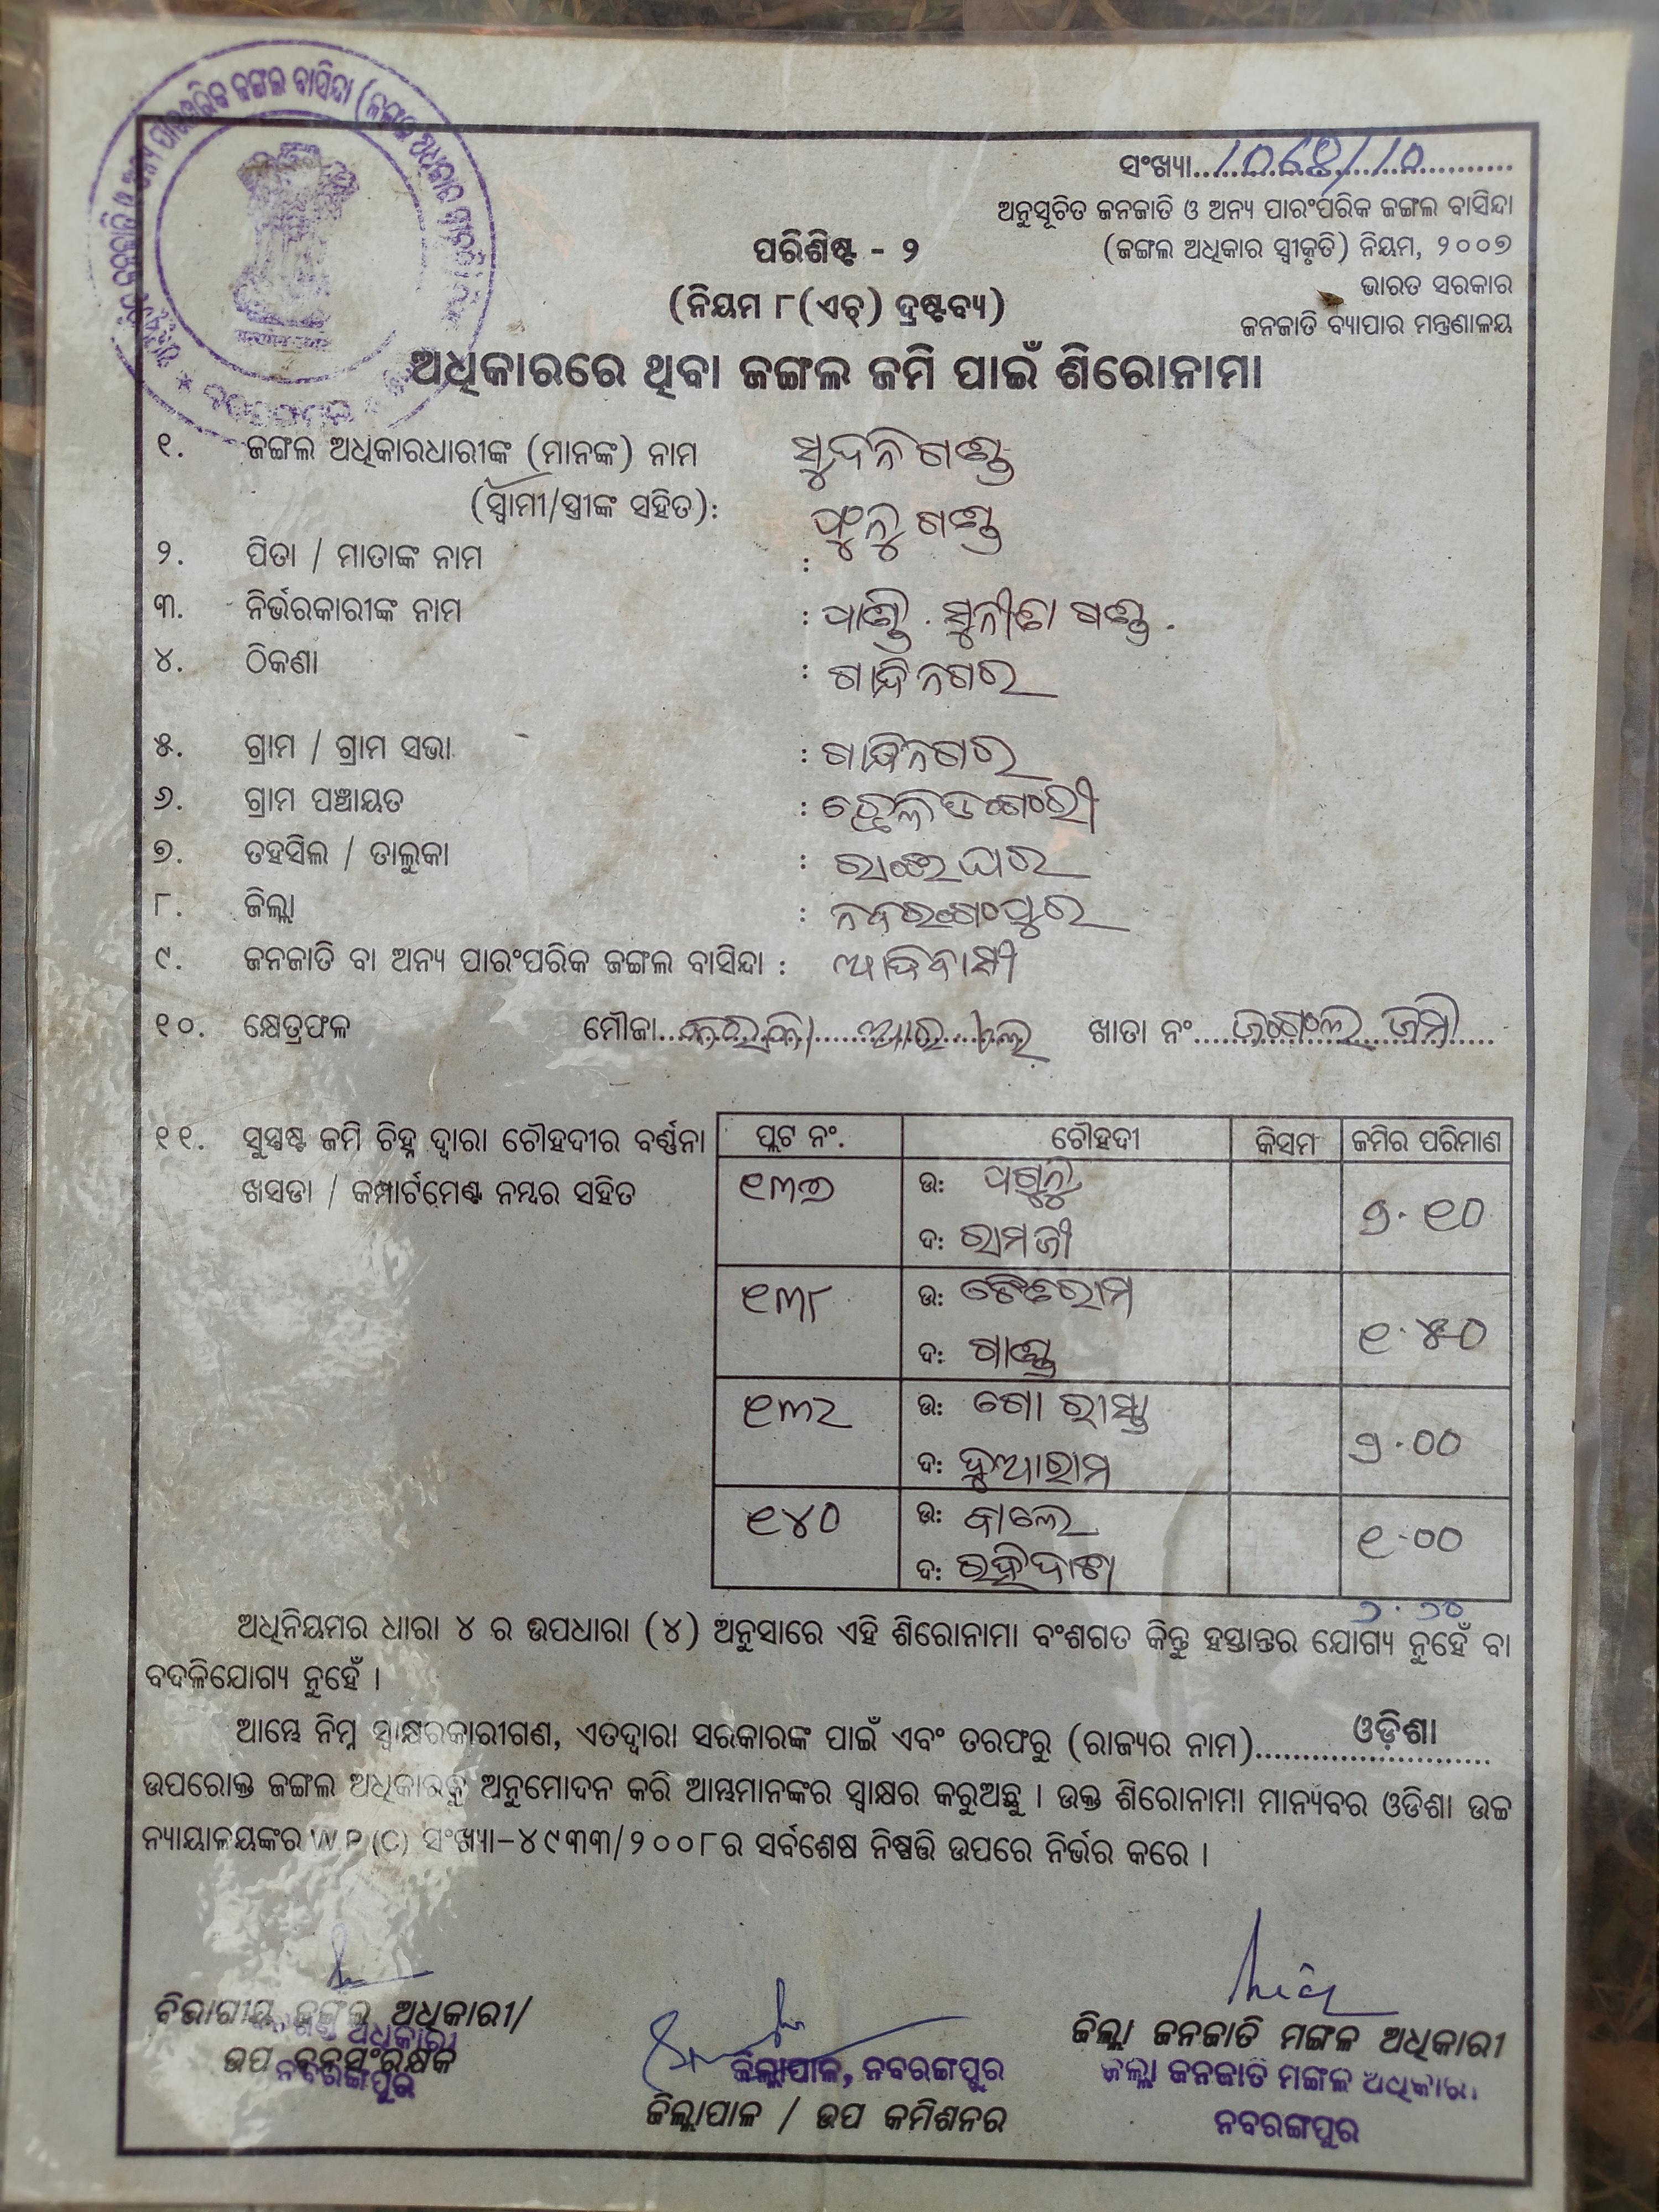 ସଂଖ୍ୟା
ଅନୁସୂଚିତ ଜନଜାତି ଓ ଅନ୍ୟ ପାରଂପରିକ ଜଙ୍ଗଲ ବାସିନ୍ଦା
(ଜଙ୍ଗଲ ଅଧିକାର ସ୍ୱୀକୃତି) ନିୟମ, ୨୦୦୭
ଭାରତ ସରକାର
ଜନଜାତି ବ୍ୟାପାର ମନ୍ତ୍ରଣାଳୟ
ପରିଶିଷ୍ଟ - ୨
(ନିୟମ ୮(ଏଚ୍) ଦ୍ରଷ୍ଟବ୍ୟ)
ଅଧିକାରରେ ଥିବା ଜଙ୍ଗଲ ଜମି ପାଇଁ ଶିରୋନାମା
୧. ଜଙ୍ଗଲ ଅଧିକାରଧାରୀଙ୍କ (ମାନଙ୍କ) ନାମ ଗଣ୍ଡ
(ସ୍ୱାମୀ/ସ୍ତ୍ରୀଙ୍କ ସହିତ): ଗଣ୍ଡ
୨. ପିତା / ମାତାଙ୍କ ନାମ :
୩. ନିର୍ଭରକାରୀଙ୍କ ନାମ : ଗଣ୍ଡ
୪. ଠିକଣା : ଗାନ୍ଧିନଗର
୫. ଗ୍ରାମ / ଗ୍ରାମ ସଭା : ଗାନ୍ଧିନଗର
୬. ଗ୍ରାମ ପଞ୍ଚାୟତ :
୭. ତହସିଲ / ତାଲୁକା : ରାଇଘର
୮. ଜିଲ୍ଲା : ନବରଂଗପୁର
୯. ଜନଜାତି ବା ଅନ୍ୟ ପାରଂପରିକ ଜଙ୍ଗଲ ବାସିନ୍ଦା : ଆଦିବାସୀ
୧୦. କ୍ଷେତ୍ରଫଳ ମୌଜା ଖାତା ନଂ ଜଙ୍ଗଲ ଜମି
୧୧. ସୁସ୍ପଷ୍ଟ ଜମି ଚିହ୍ନ ଦ୍ୱାରା ଚୌହଦୀର ବର୍ଣ୍ଣନା
ଖସଡା / କମ୍ପାର୍ଟମେଣ୍ଟ ନମ୍ବର ସହିତ
ପ୍ଲଟ ନଂ. ଚୌହଦୀ କିସମ ଜମିର ପରିମାଣ
୧୩୭ ଉ:
ଦ: ରାମଜୀ
୧୩୮ ଉ: ୧.୫୦
ଦ:
ଉ:
ଦ:
୧୪୦ ଉ: ୧.୦୦
ଦ:
ଅଧିନିୟମର ଧାରା ୪ ର ଉପଧାରା (୪) ଅନୁସାରେ ଏହି ଶିରୋନାମା ବଂଶଗତ କିନ୍ତୁ ହସ୍ତାନ୍ତର ଯୋଗ୍ୟ ନୁହେଁ ବା
ବଦଳିଯୋଗ୍ୟ ନୁହେଁ ।
ଆମ୍ଭେ ନିମ୍ନ ସ୍ୱାକ୍ଷରକାରୀଗଣ, ଏତଦ୍ୱାରା ସରକାରଙ୍କ ପାଇଁ ଏବଂ ତରଫରୁ (ରାଜ୍ୟର ନାମ) ଓଡ଼ିଶା
ଉପରୋକ୍ତ ଜଙ୍ଗଲ ଅଧିକାରକୁ ଅନୁମୋଦନ କରି ଆମ୍ଭମାନଙ୍କର ସ୍ୱାକ୍ଷର କରୁଅଛୁ । ଉକ୍ତ ଶିରୋନାମା ମାନ୍ୟବର ଓଡିଶା ଉଚ୍ଚ
ନ୍ୟାୟାଳୟଙ୍କର W.P (C) ସଂଖ୍ୟା-୪୯୩୩/୨୦୦୮ର ସର୍ବଶେଷ ନିଷ୍ପତ୍ତି ଉପରେ ନିର୍ଭର କରେ ।
ବିଭାଗୀୟ ଜଙ୍ଗଲ ଅଧିକାରୀ/
ଉପ ବନସଂରକ୍ଷକ
ନବରଙ୍ଗପୁର
ଜିଲ୍ଲାପାଳ, ନବରଙ୍ଗପୁର
ଜିଲ୍ଲାପାଳ / ଉପ କମିଶନର
ଜିଲ୍ଲା ଜନଜାତି ମଙ୍ଗଳ ଅଧିକାରୀ
ଜିଲ୍ଲା ଜନଜାତି ମଙ୍ଗଳ ଅଧିକାରୀ
ନବରଙ୍ଗପୁର